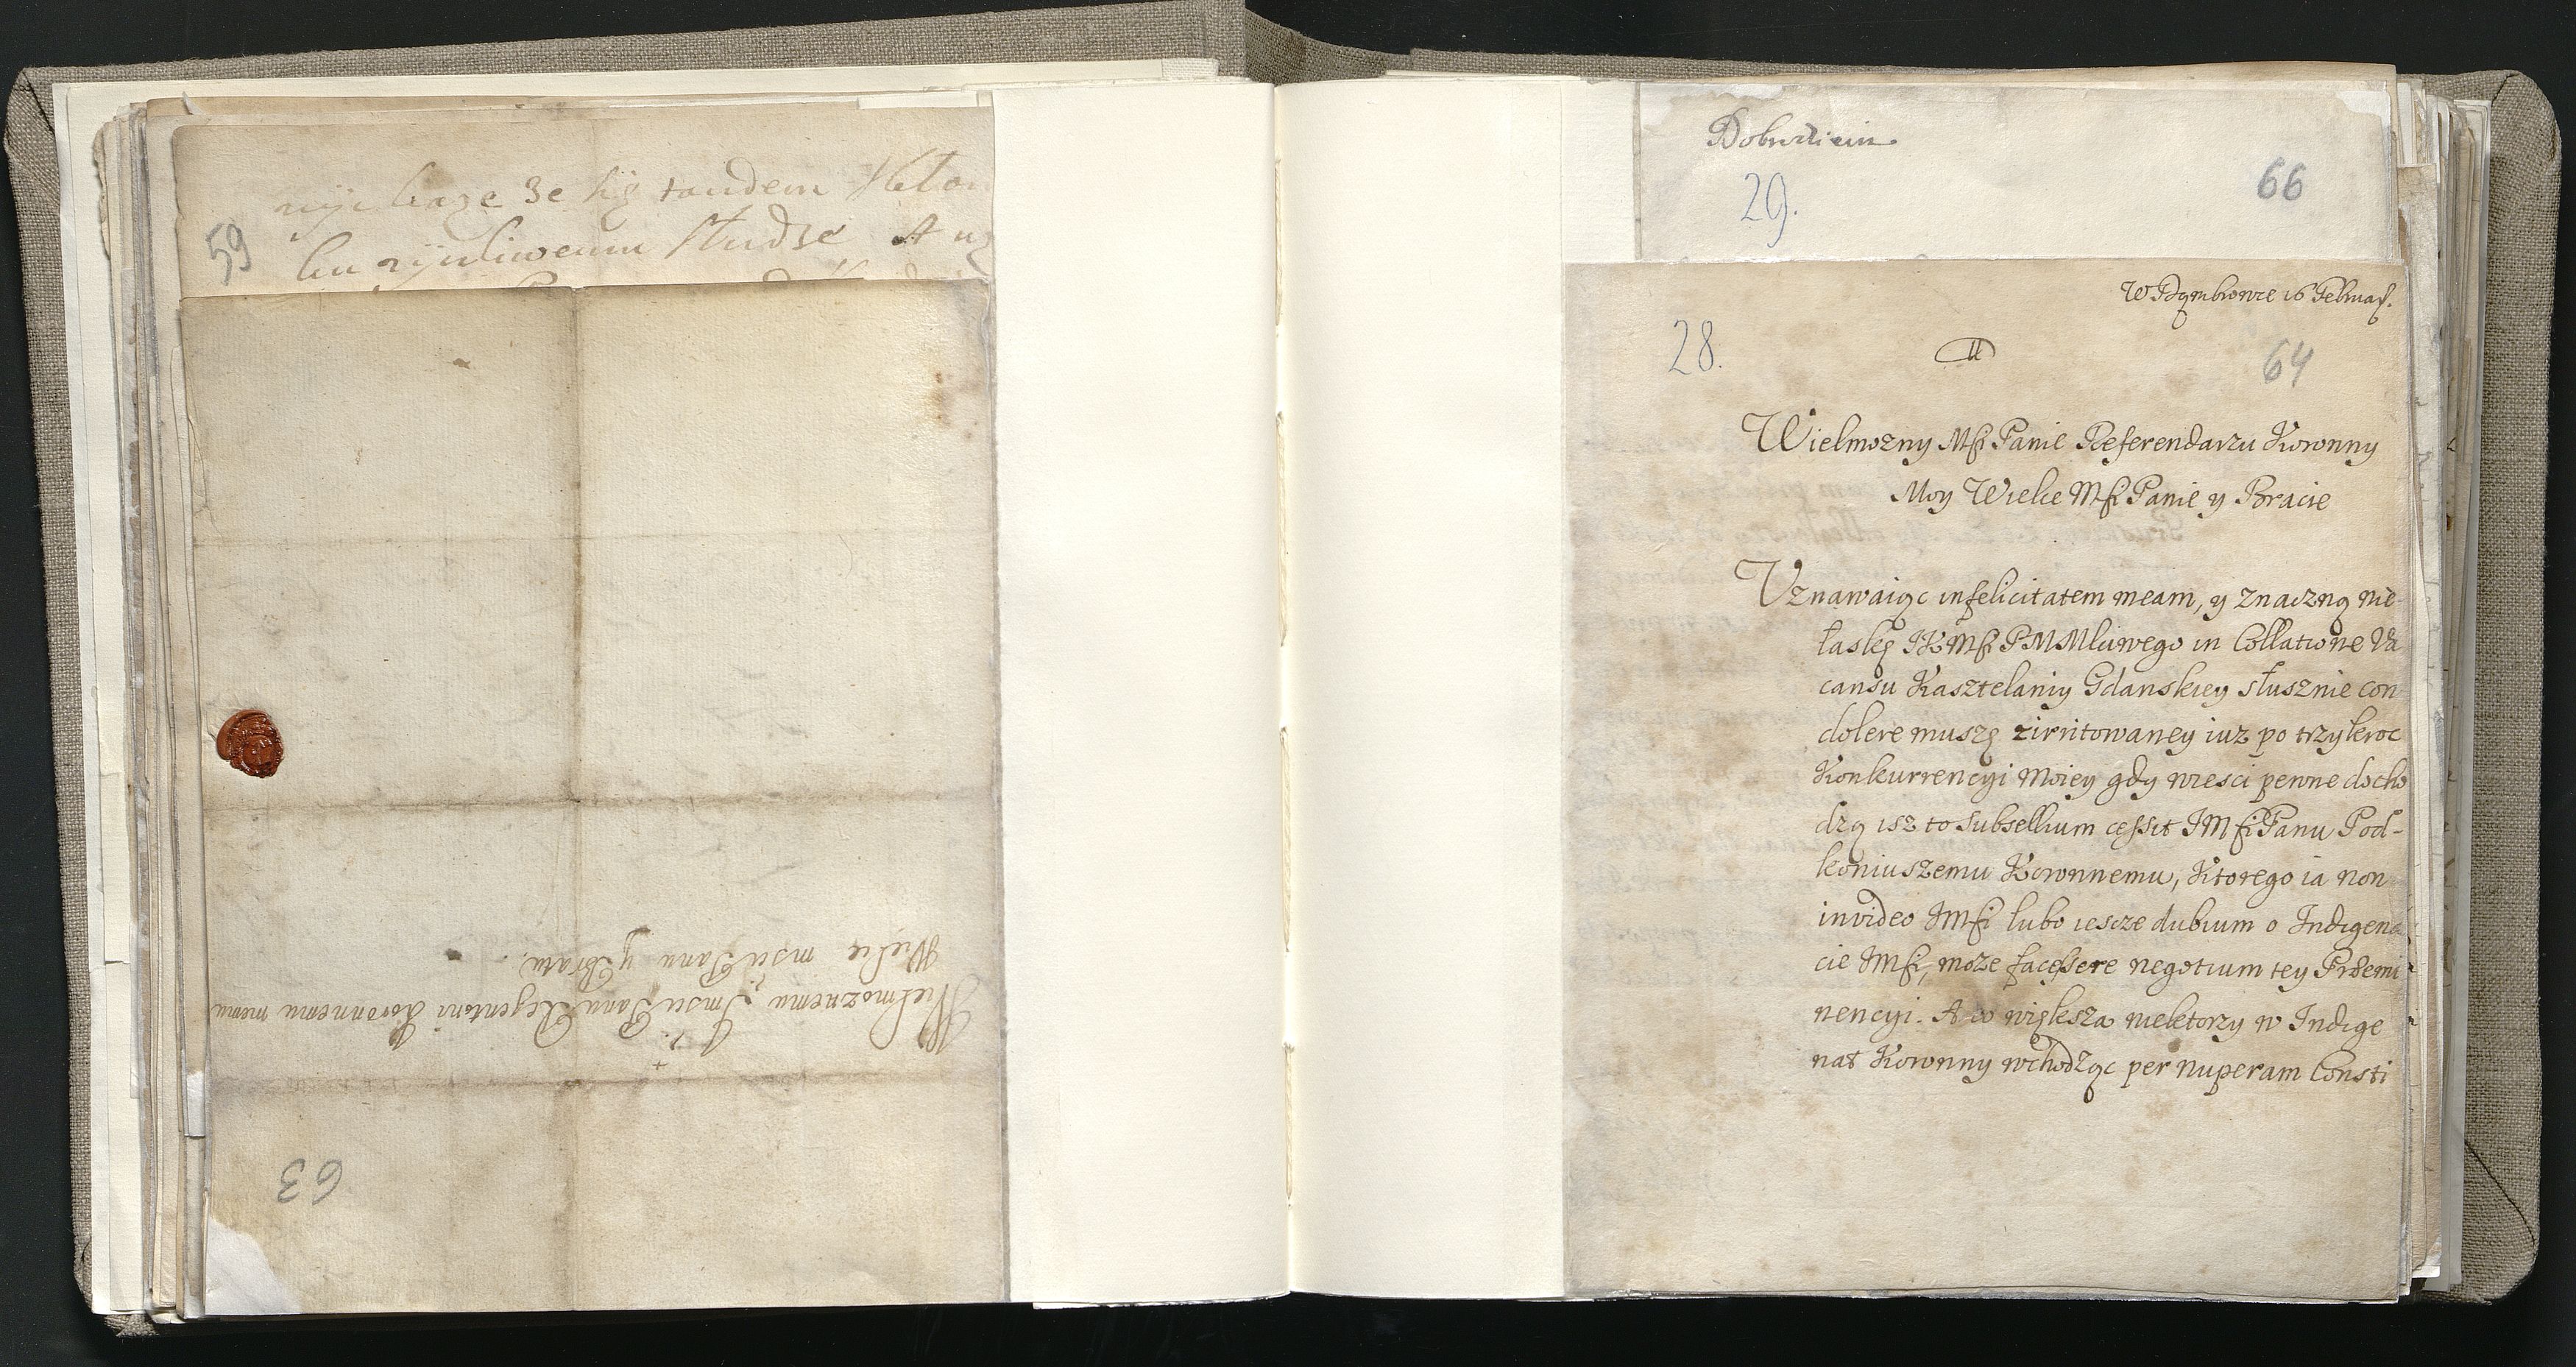 59
tandem
63
Wielmoznemu Imsci Panu Regentowi Koronnemu memu
Wielce msci Panu y Bratu.
Dobrodzieiu
29.
66
W Dąmbrowie 16 Februar.
28.
64
Wielmozny Mści Panie Referendarzu Koronny
Moy Wielce Mści Panie y Bracie
Vznawaiąc infelicitatem meam, y znaczną nie
łaskę JKMści PMMłciwego in Collatione Va
cansu Kasztelaniy Gdanskiey słusznie con
dolere muszę zirritowaney iuz po trzykroc
Konkurrencyi moiey gdy wiesci pewne docho
dzą isz to subsellium cessit JMści Panu Pod-
koniuszemu Koronnemu, Ktorego ia non
invideo JMści lubo iescze dubium o Indigena
cie JMści, moze facessere negotium tey Præemi
nencyi. A co większa niektorzy w Indige
nat Koronny wchodząc per nuperam Consti